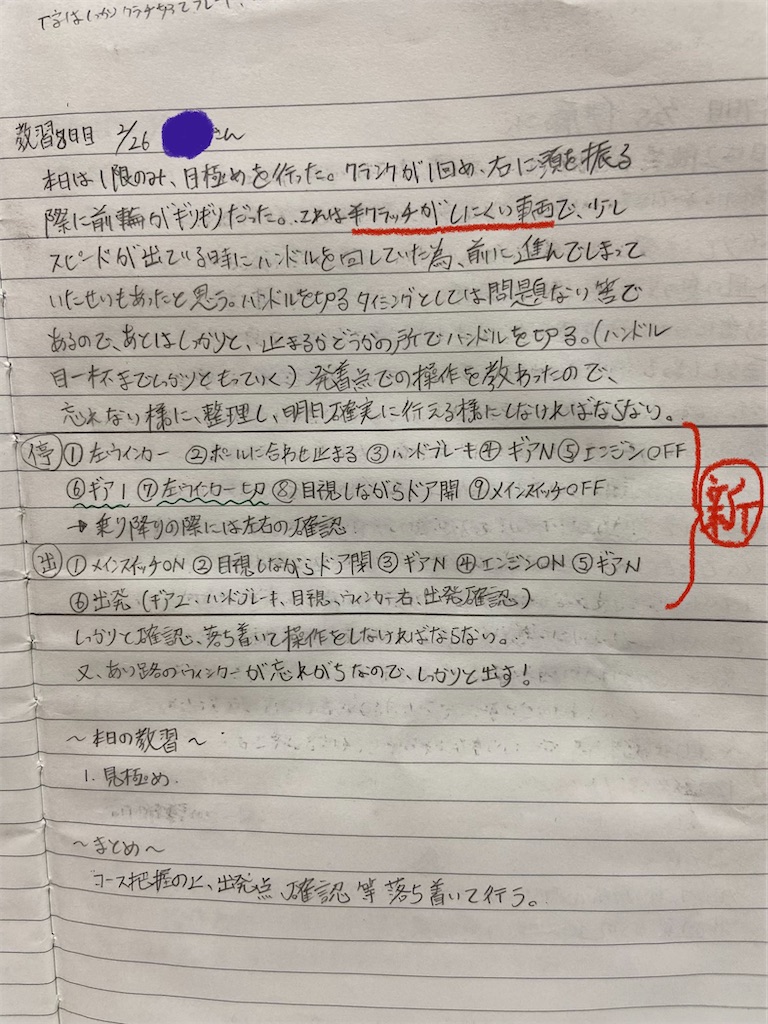 T字はしっかりクラッチ切ってブレーキ、
教習8日目 2/26 さん
本日は1限のみ、目極めを行った。クランクが1回め、右に頭を振る
際に前輪がギリギリだった。これは半クラッチがしにくい車両で、少し
スピードが出ている時にハンドルを回していた為、前に進んでしまって
いたせいもあったと思う。ハンドルを切るタイミングとしては問題ない筈で
あるので、あとはしっかりと、止まるかどうかの所でハンドルを切る。(ハンドル
目一杯までしっかりともっていく) 発着点での操作を教わったので、
忘れない様に、整理し、明日確実に行える様にしなければならない。
停 ①左ウインカー ②ポールに合わせ止まる ③ハンドブレーキ ④ギアN ⑤エンジンOFF
⑥ギア1 ⑦左ウインカー切 ⑧目視しながらドア開 ⑨メインスイッチOFF
新
→乗り降りの際には左右の確認
出 ①メインスイッチON ②目視しながらドア閉 ③ギアN ④エンジンON ⑤ギアN
⑥出発 (ギア2、ハンドブレーキ、目視、ウィンカー右、出発確認)
しっかりと確認、落ち着いて操作をしなければならない。
又、あい路のウィンカーが忘れがちなので、しっかりと出す!
～本日の教習～
1. 見極め.
～まとめ～
コース把握の上、出発点、確認 等 落ち着いて行う。